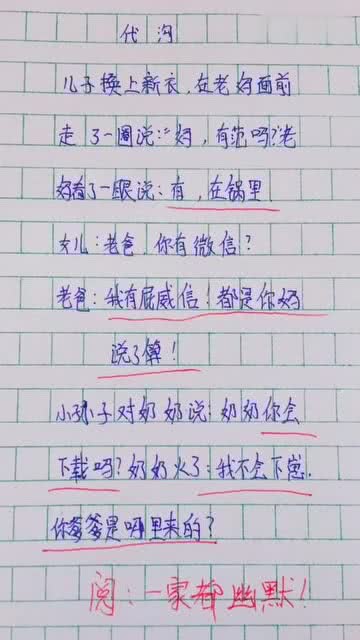 代沟
儿子换上新衣，在老妈面前
走了一圈说："妈，有范吗？老
妈看了一眼说：有，在锅里
女儿：老爸，你有微信？
老爸：我有屁威信！都是你妈
说了算！
小孙子对奶奶说：奶奶你会
下载吗？奶奶火了：我不会下崽.
你爹爹是哪里来的？
阅：一家都幽默！